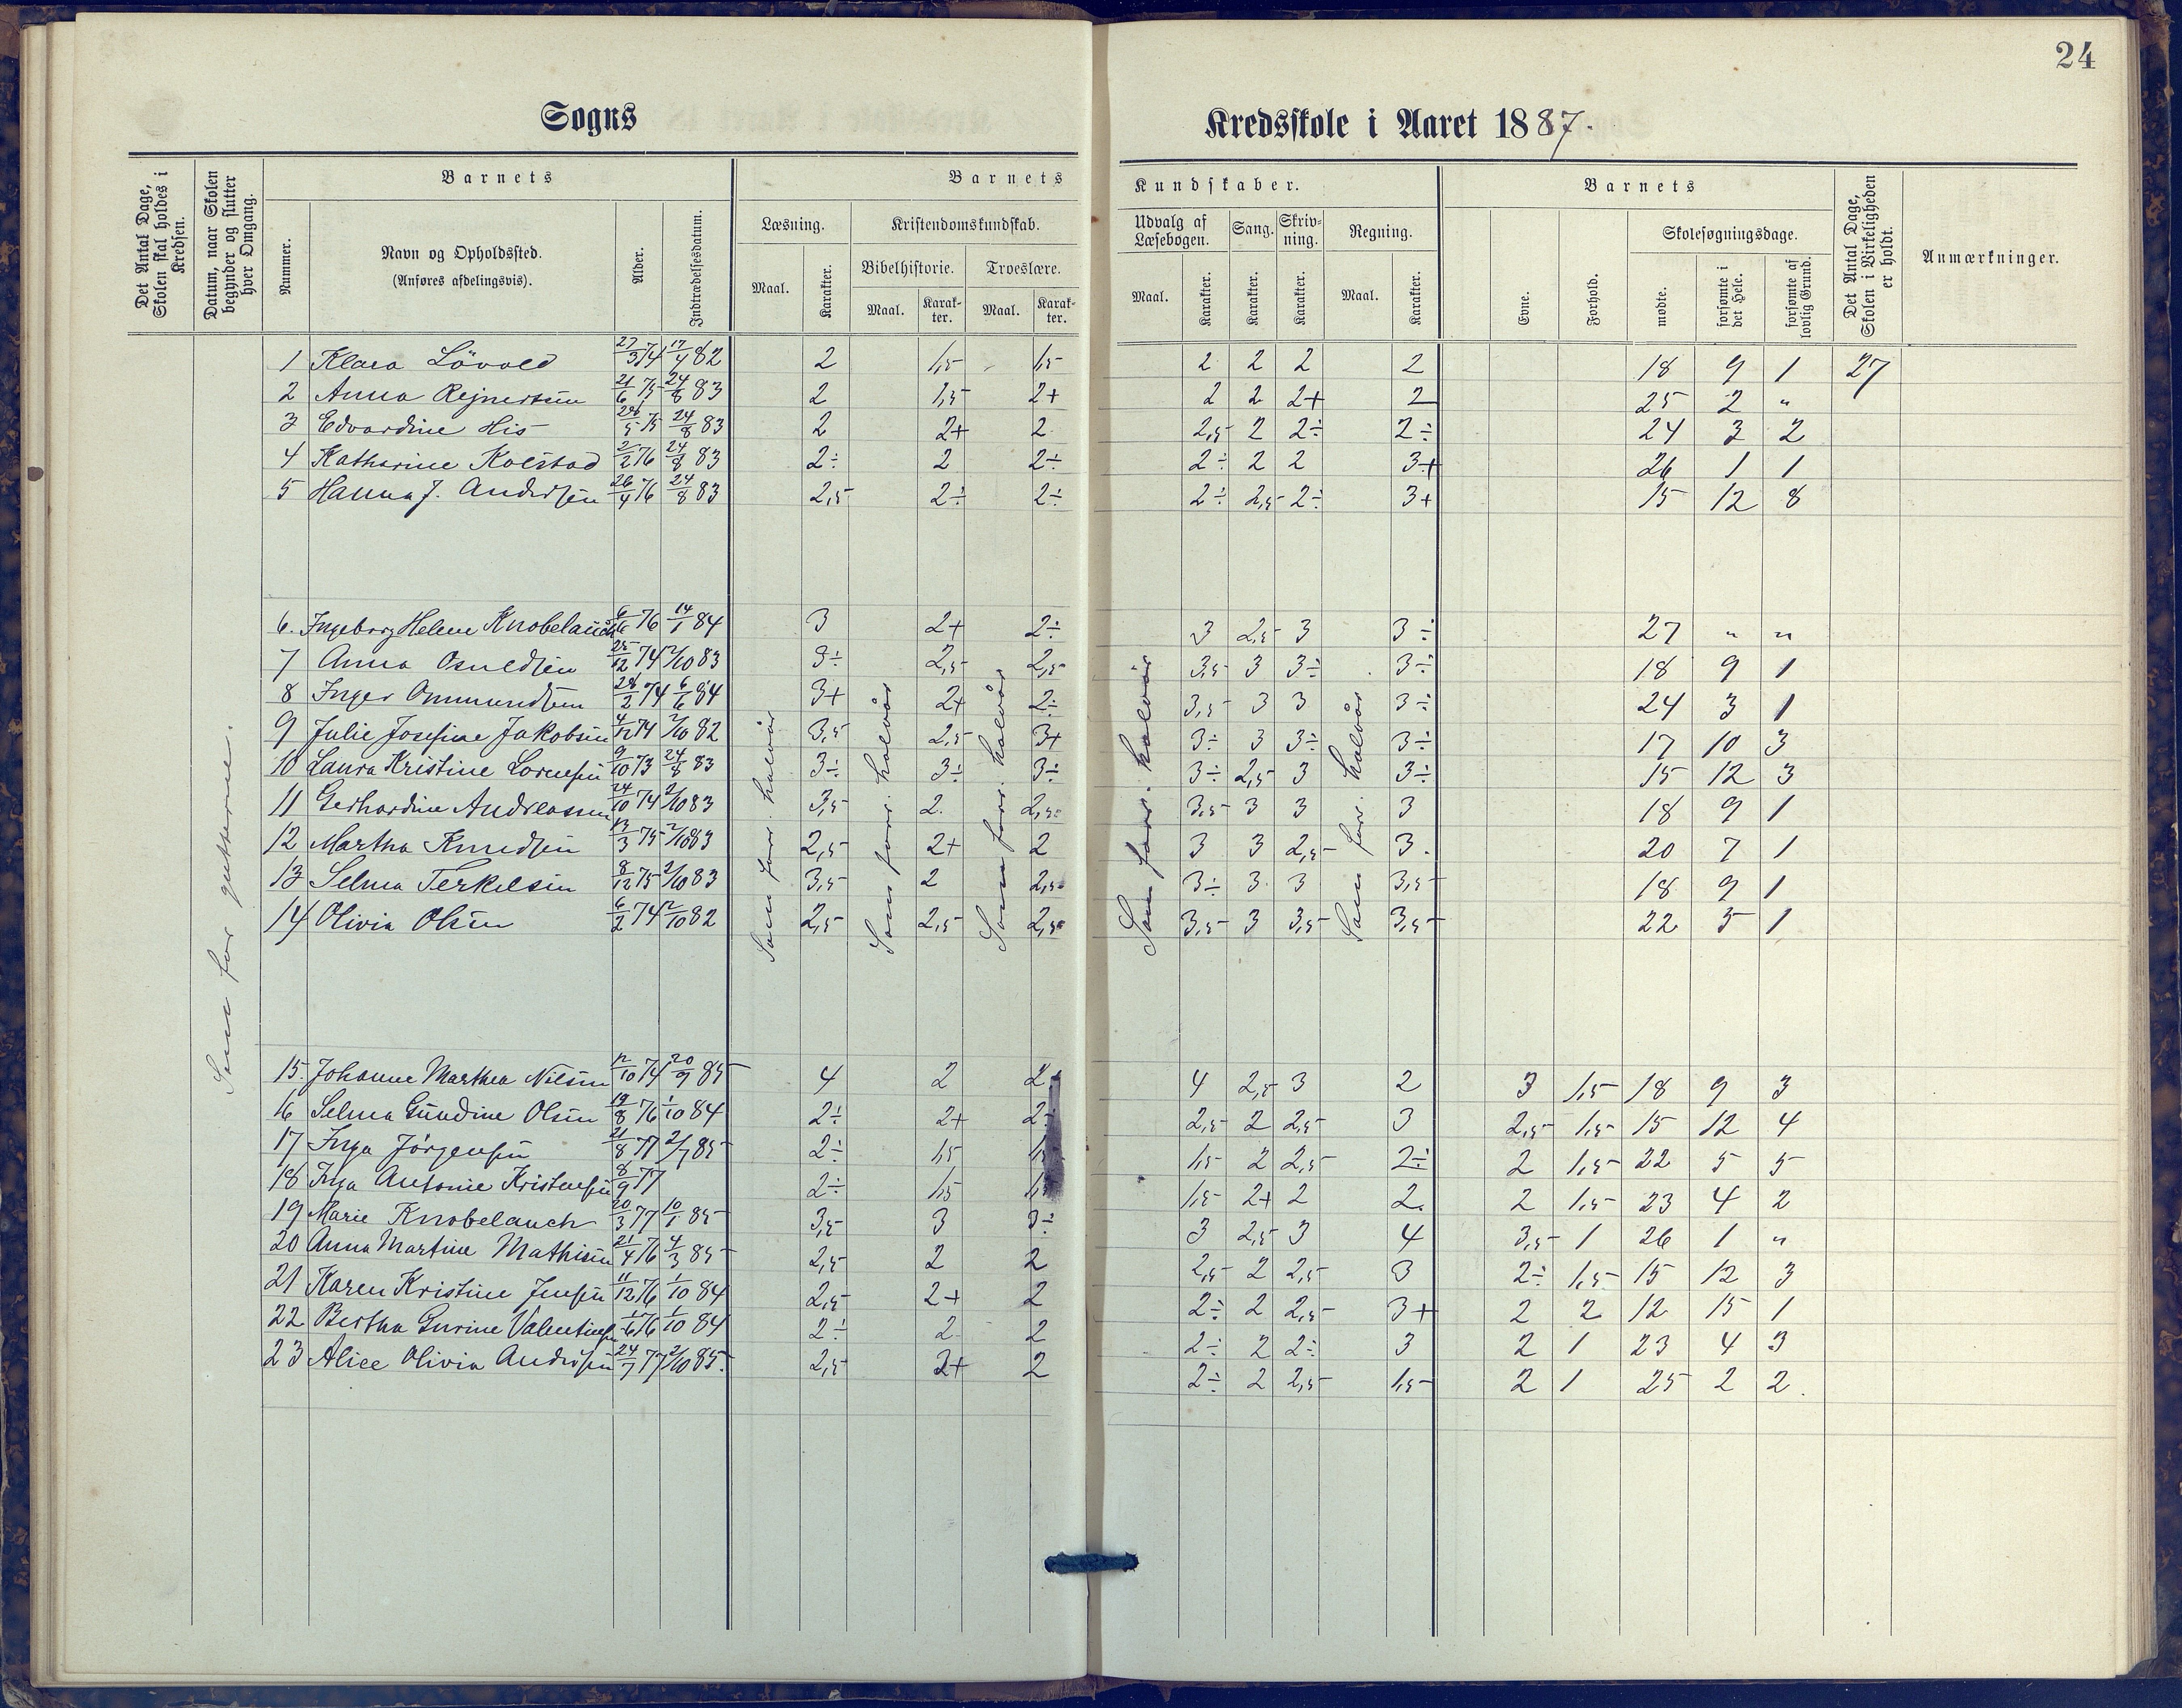 24
Sogns Kredsskole i Aaret 1887.
Det Antal Dage, Skolen skal holdes i Kredsen.
Datum, naar Skolen begynder og slutter hver Omgang.
Barnets
Nummer.
Navn og Opholdssted.
(Anføres afdelingsvis).
Alder.
Indtrædelsesdatum.
Barnets Kundskaber.
Læsning.
Maal. Karakter.
Kristendomskundskab.
Bibelhistorie. Troeslære.
Maal. Karakter. Maal. Karakter.
Udvalg af Læsebogen. Sang. Skrivning. Regning.
Maal. Karakter. Karakter. Karakter. Maal. Karakter.
Barnets
Evne. Forhold.
Skolesøgningsdage.
mødte. forsømte i det Hele. forsømte af lovlig Grund.
Det Antal Dage, Skolen i Virkeligheden er holdt.
Anmærkninger.
Som for gutterne.
1 Klara Lövold 27/3 74 17/4 82 2 1,5 1,5 2 2 2 2 18 9 1 27
2 Anna Rejnertsen 21/6 75 24/8 83 2 1,5 2+ 2 2 2+ 2 25 2 "
3 Edvardine His 28/5 75 24/8 83 2 2+ 2 2,5 2 2÷ 2÷ 24 3 2
4 Katharine Kolstad 2/2 76 24/8 83 2÷ 2 2÷ 2÷ 2 2 3+ 26 1 1
5 Hanna J. Andersen 26/4 76 24/8 83 2,5 2÷ 2÷ 2÷ 2,5 2÷ 3+ 15 12 8
6. Ingeborg Helene Knobelauch 76 14/1 84 3 2+ 2÷ 3 2,5 3 3÷ 27 " "
7 Anna Osuldsen 25/12 74 2/10 83 3÷ 2,5 2,5 3,5 3 3÷ 3÷ 18 9 1
8 Inger Ommundsen 28/2 74 6/6 84 3+ 2+ 2÷ 3,5 3 3 3÷ 24 3 1
9 Julie Josefine Jakobsen 4/12 74 2/10 82 3,5 2,5 3+ 3÷ 3 3÷ 3÷ 17 10 3
10 Laura Kristine Lornesen 9/10 73 24/8 83 3÷ 3÷ 3÷ 3÷ 2,5 3 3÷ 15 12 3
11 Gerhardine Andreassen 24/10 74 2/10 83 3,5 2. 2,5 3,5 3 3 3 18 9 1
12 Martha Knudsen 13/3 75 2/10 83 2,5 2+ 2 3 3 2,5 3. 20 7 1
13 Selma Terkelsen 8/12 75 2/10 83 3,5 2 2,5 3÷ 3 3 3,5 18 9 1
14 Olivia Olsen 6/2 74 2/10 82 2,5 2,5 2,5 3,5 3 3,5 3,5 22 5 1
Som forr. halvår
Som forr. halvår
Som forr. halvår
Som forr. halvår
Som forr. halvår
15. Johanne Marthea Nilsen 12/10 74 20/9 85 4 2 2 4 2,5 3 2 3 1,5 18 9 3
16 Selma Gundine Olsen 19/8 76 1/10 84 2÷ 2+ 2÷ 2,5 2 2,5 3 2,5 1,5 15 12 4
17 Inga Jörgensen 21/8 77 2/7 85 2÷ 1,5 1,5 2 2,5 2÷ 2 1,5 22 5 5
18 Inga Antonie Kristensen 8/9 77 2÷ 1,5 1,5 1,5 2+ 2 2. 2 1,5 23 4 2
19 Marie Knobelauch 20/3 77 10/1 85 3,5 3 3÷ 3 2,5 3 4 3,5 1 26 1 "
20 Anna Martine Mathisen 21/4 76 4/3 85 2,5 2 2 2,5 2 2,5 3 2÷ 1,5 15 12 3
21 Karen Kristine Jensen 11/12 76 1/10 84 2,5 2+ 2 2÷ 2 2,5 3+ 2 2 12 15 1
22 Bertha Gurine Valentinsen 76 1/10 84 2÷ 2 2 2÷ 2 2÷ 3 2 1 23 4 3
23 Alice Olivia Andersen 24/7 77 2/10 85. 2,5 2+ 2 2÷ 2 2,5 1,5 2 1 25 2 2.